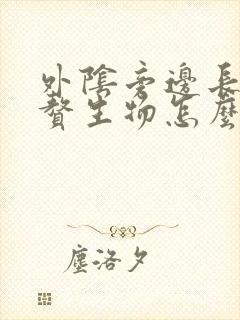 外陰旁邊長
贅生物怎麼
塵洛夕